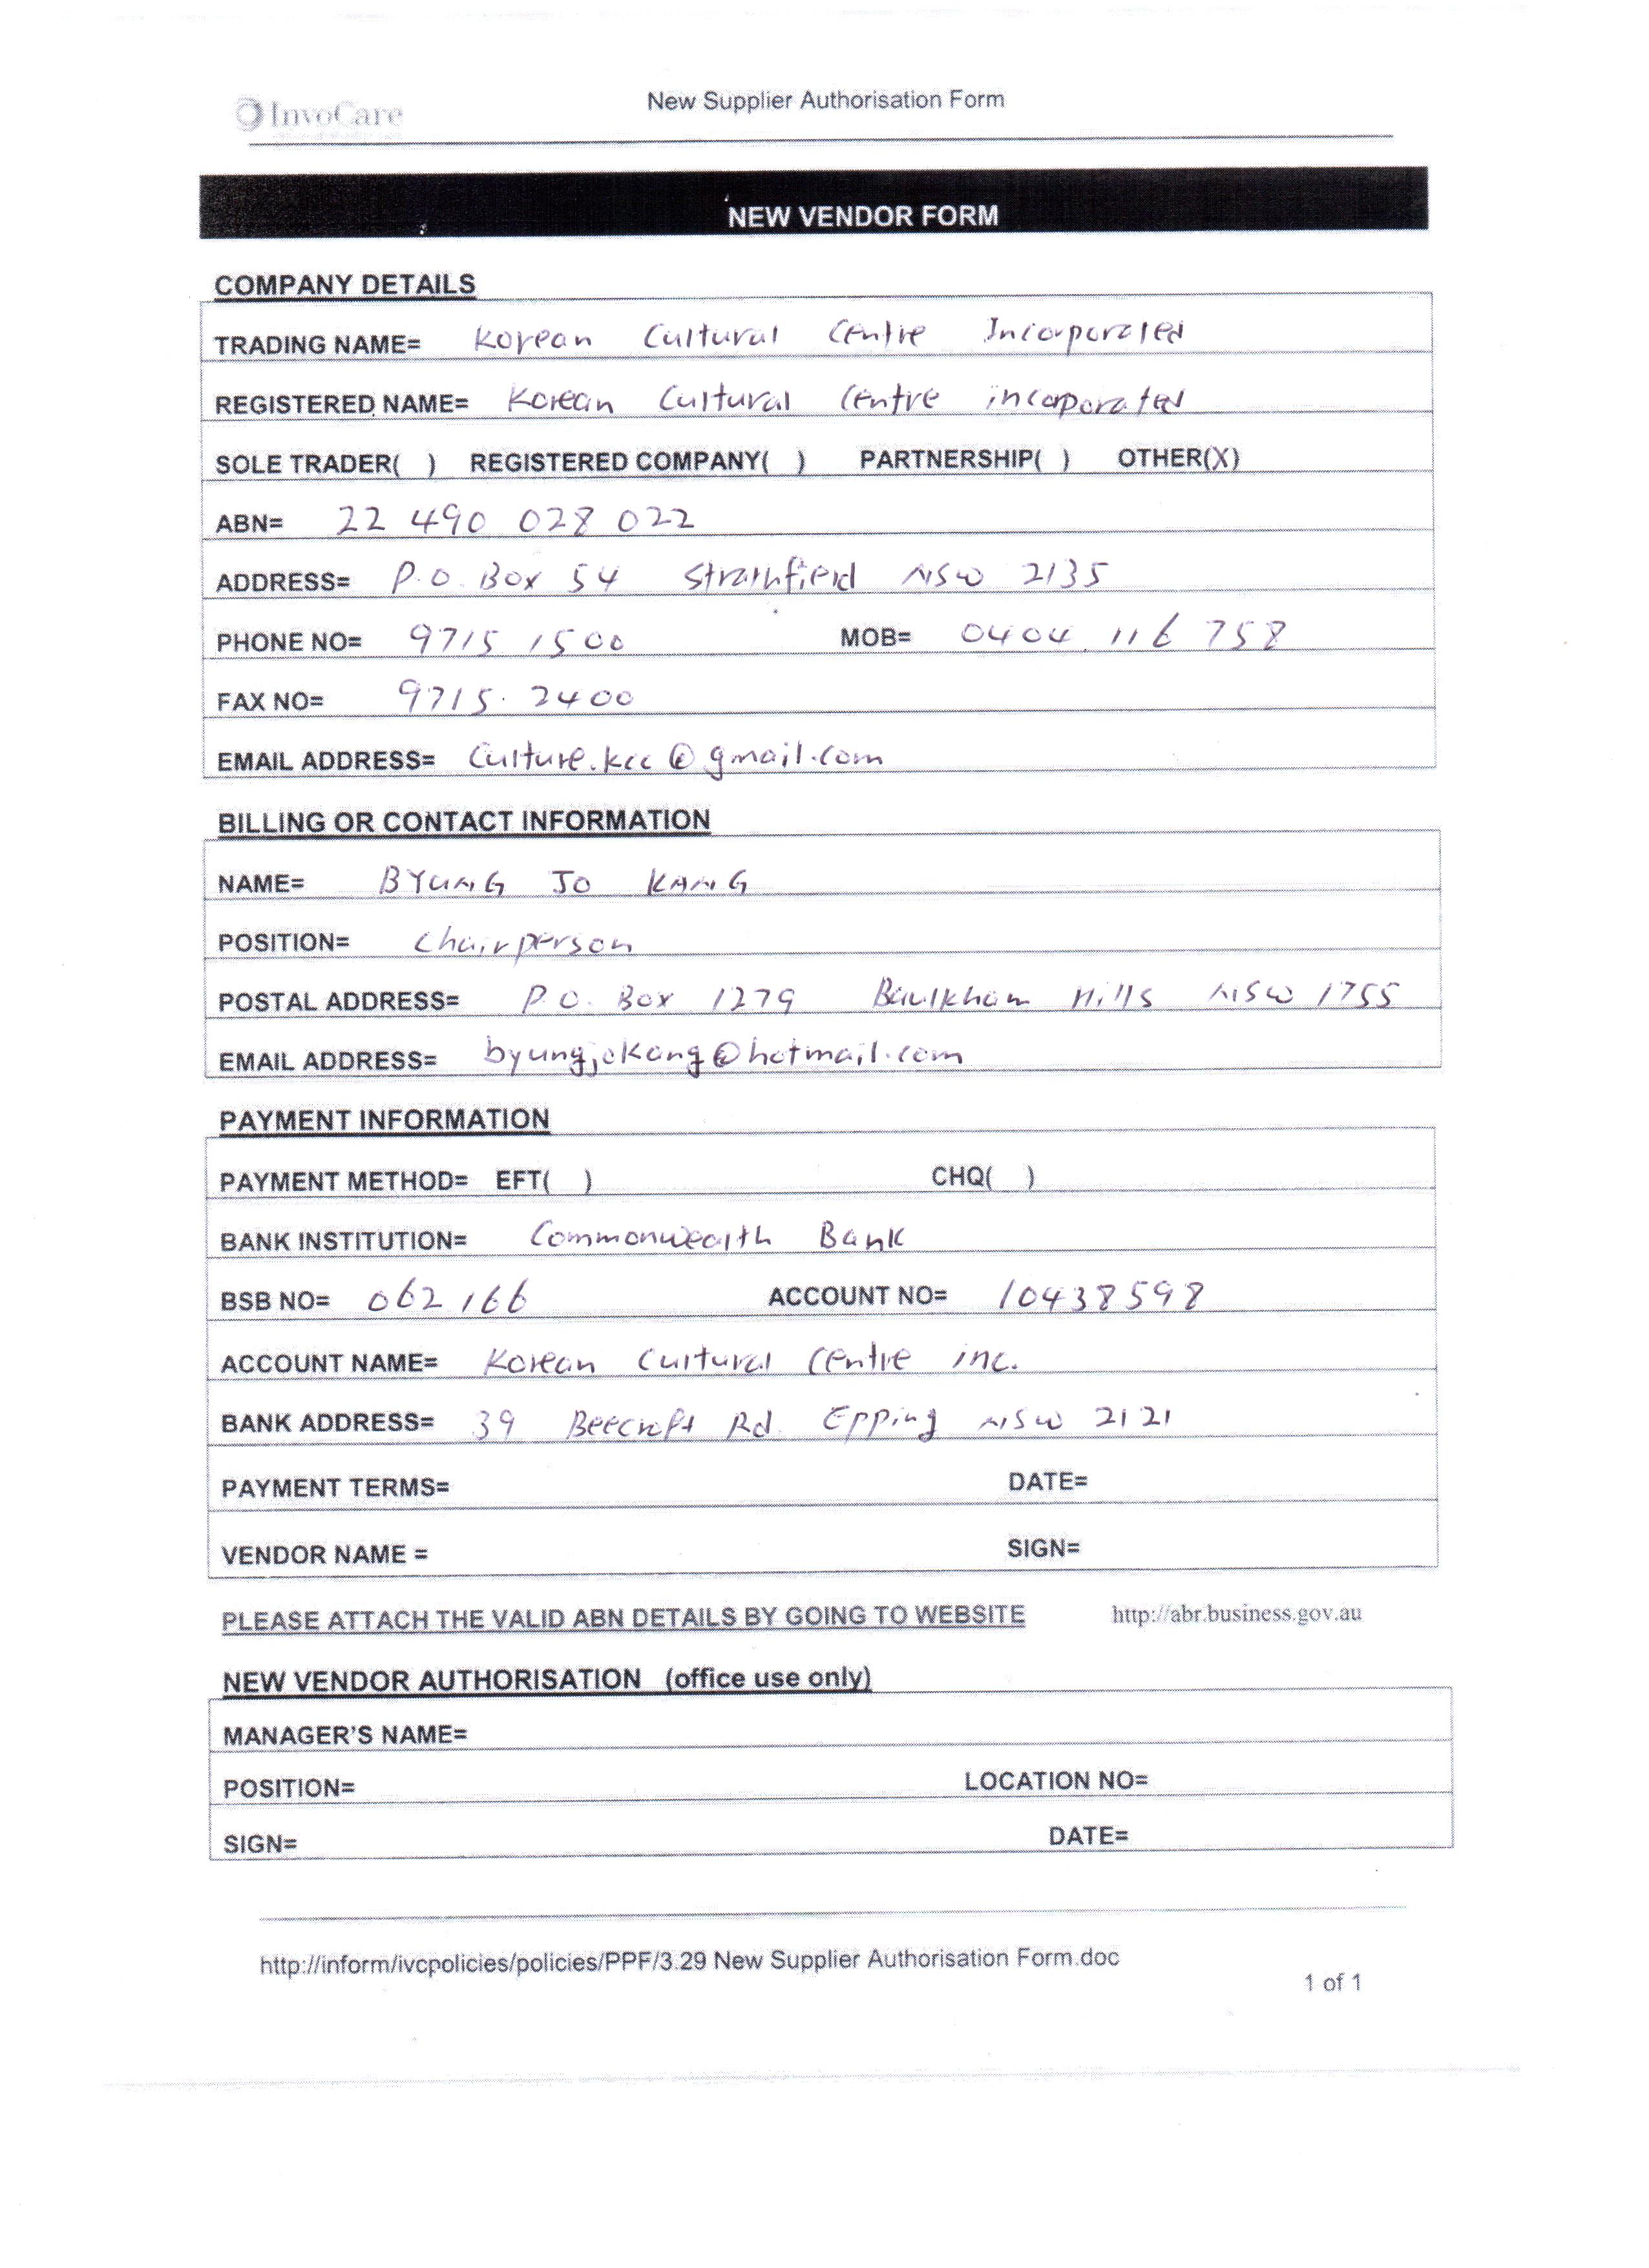 InvoCare
New Supplier Authorisation Form
NEW VENDOR FORM
COMPANY DETAILS
TRADING NAME= Korean Cultural Centre Incorporated
REGISTERED NAME= Korean Cultural Centre incorporated
SOLE TRADER( ) REGISTERED COMPANY( ) PARTNERSHIP( ) OTHER(X)
ABN= 22 490 028 022
ADDRESS= P.O. Box 54 Strathfield NSW 2135
PHONE NO= 9715 1500 MOB= 0404 116 758
FAX NO= 9715. 2400
EMAIL ADDRESS= Culture.kcc@gmail.com
BILLING OR CONTACT INFORMATION
NAME= BYUNG JO KANG
POSITION= Chairperson
POSTAL ADDRESS= P.O. Box 1279 Baulkham Hills NSW 1755
EMAIL ADDRESS= byungjokang@hotmail.com
PAYMENT INFORMATION
PAYMENT METHOD= EFT( ) CHQ( )
BANK INSTITUTION= Commonwealth Bank
BSB NO= 062 166 ACCOUNT NO= 10438598
ACCOUNT NAME= Korean Cultural Centre inc.
BANK ADDRESS= 39 Beecroft Rd. Epping NSW 2121
PAYMENT TERMS= DATE=
VENDOR NAME = SIGN=
PLEASE ATTACH THE VALID ABN DETAILS BY GOING TO WEBSITE http://abr.business.gov.au
NEW VENDOR AUTHORISATION (office use only)
MANAGER'S NAME=
POSITION= LOCATION NO=
SIGN= DATE=
http://inform/ivcpolicies/policies/PPF/3.29 New Supplier Authorisation Form.doc
1 of 1